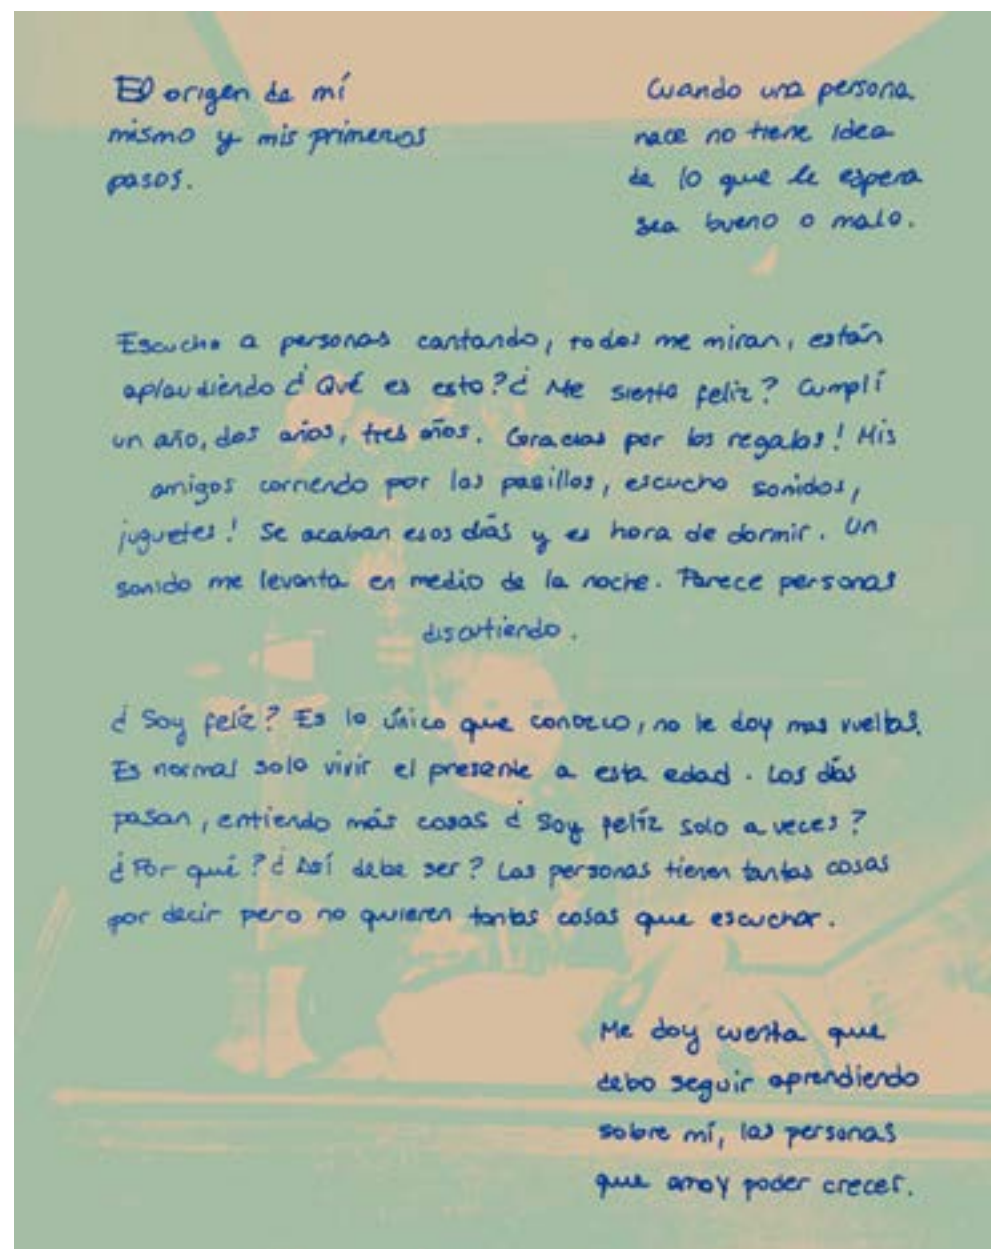 El origen de mí
mismo y mis primeros
pasos.
Cuando una persona
nace no tiene idea
de lo que le espera
sea bueno o malo.
Escucho a personas cantando, todos me miran, están
aplaudiendo ¿Qué es esto? ¿Me siento feliz? Cumplí
un año, dos años, tres años. Gracias por los regalos! Mis
amigos corriendo por los pasillos, escucho sonidos,
juguetes! Se acaban esos días y es hora de dormir. Un
sonido me levanta en medio de la noche. Parece personas
discutiendo.
¿Soy felíz? Es lo único que conozco, no le doy mas vueltas.
Es normal solo vivir el presente a esta edad. Los días
pasan, entiendo más cosas ¿Soy felíz solo a veces?
¿Por qué? ¿Así debe ser? Las personas tienen tantas cosas
por decir pero no quieren tantas cosas que escuchar.
Me doy cuenta que
debo seguir aprendiendo
sobre mí, las personas
que amo y poder crecer.